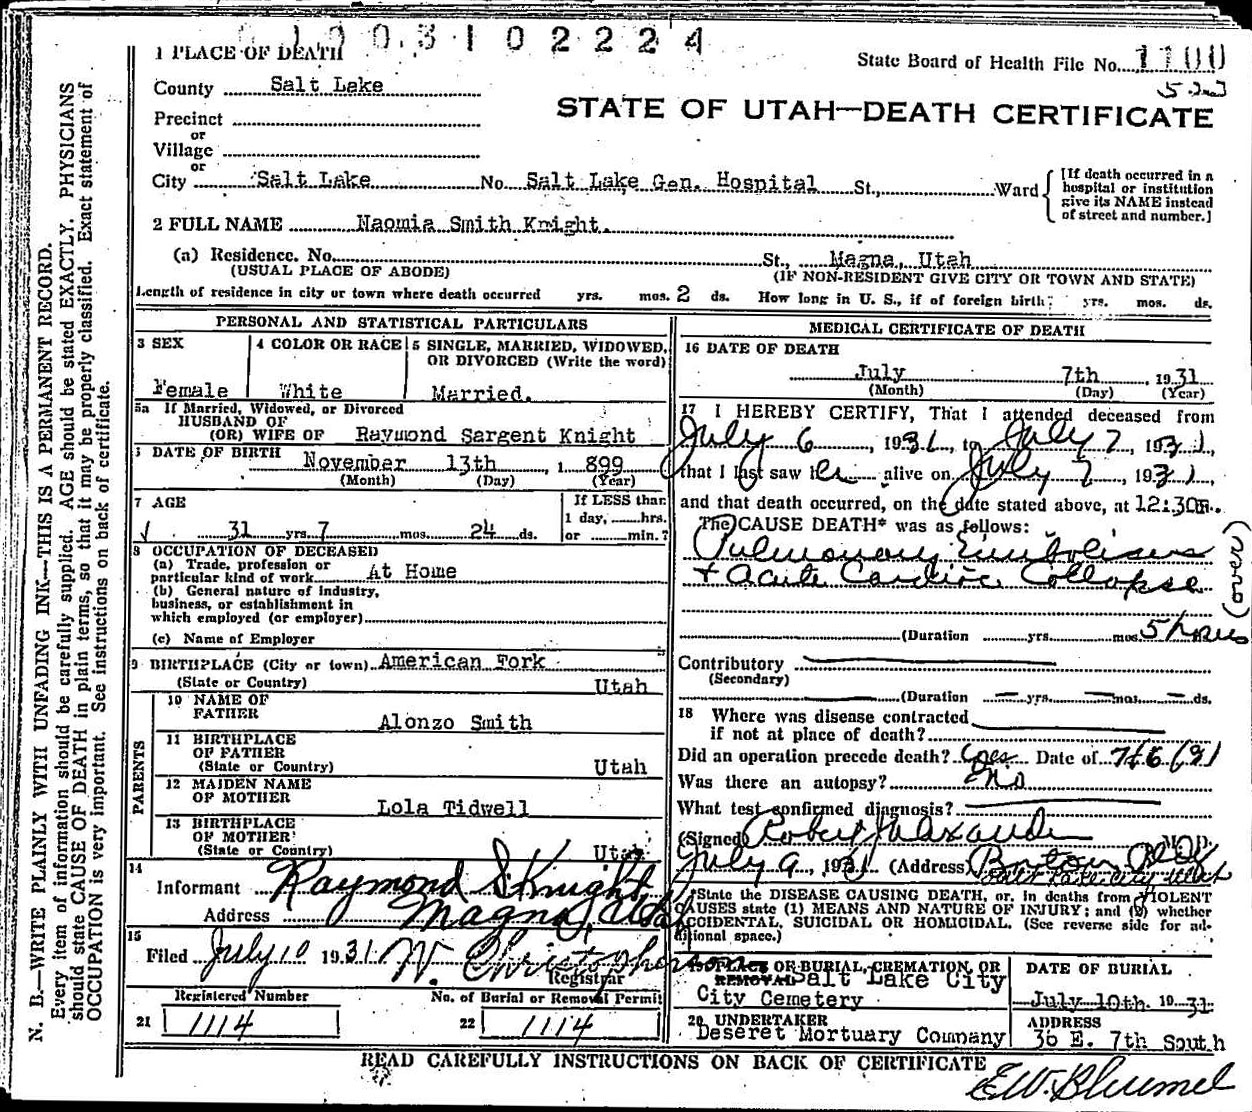 0 1 0 0 3 1 0 2 2 2 4
1 PLACE OF DEATH
State Board of Health File No. 1100
County Salt Lake
STATE OF UTAH—DEATH CERTIFICATE
Precinct
or
Village
or
City Salt Lake No. Salt Lake Gen. Hospital St., Ward
[If death occurred in a
hospital or institution
give its NAME instead
of street and number.]
2 FULL NAME Naomia Smith Knight.
(a) Residence. No. St., Magna, Utah
(USUAL PLACE OF ABODE) (IF NON-RESIDENT GIVE CITY OR TOWN AND STATE)
Length of residence in city or town where death occurred yrs. mos. 2 ds. How long in U. S., if of foreign birth? yrs. mos. ds.
PERSONAL AND STATISTICAL PARTICULARS
3 SEX
Female
4 COLOR OR RACE
White
5 SINGLE, MARRIED, WIDOWED,
OR DIVORCED (Write the word)
Married.
5a If Married, Widowed, or Divorced
HUSBAND OF
(OR) WIFE OF Raymond Sargent Knight
6 DATE OF BIRTH November 13th , 1 899
(Month) (Day) (Year)
7 AGE
31 yrs. 7 mos. 24 ds.
If LESS than
1 day, hrs.
or min.?
8 OCCUPATION OF DECEASED
(a) Trade, profession or
particular kind of work At Home
(b) General nature of industry,
business, or establishment in
which employed (or employer)
(c) Name of Employer
9 BIRTHPLACE (City or town) American Fork
(State or Country) Utah
PARENTS
10 NAME OF
FATHER Alonzo Smith
11 BIRTHPLACE
OF FATHER
(State or Country) Utah
12 MAIDEN NAME
OF MOTHER Lola Tidwell
13 BIRTHPLACE
OF MOTHER
(State or Country) Utah
14
Informant Raymond S Knight
Address Magna, Utah
15
Filed July 10 1931 W. Christopherson
Registrar
Registered Number
21 1114
No. of Burial or Removal Permit
22 1114
MEDICAL CERTIFICATE OF DEATH
16 DATE OF DEATH
July 7th , 1931
(Month) (Day) (Year)
17 I HEREBY CERTIFY, That I attended deceased from
July 6 , 1931, to July 7 , 1931,
that I last saw her alive on July 7 , 1931
and that death occurred, on the date stated above, at 12:30
The CAUSE DEATH* was as follows:
Pulmonary Embolism
+ acute Cardiac Collapse
(over)
(Duration yrs. mos. 5 hours
Contributory
(Secondary)
(Duration yrs. mos. ds.
18 Where was disease contracted
if not at place of death?
Did an operation precede death? yes Date of 7/6/31
Was there an autopsy? no
What test confirmed diagnosis?
(Signed) Robert Alexander M. D.
July 9, 1931 (Address)
Salt Lake City Utah
*State the DISEASE CAUSING DEATH, or, in deaths from VIOLENT
CAUSES state (1) MEANS AND NATURE OF INJURY; and (2) whether
ACCIDENTAL, SUICIDAL OR HOMICIDAL. (See reverse side for ad-
ditional space.)
19 PLACE OF BURIAL, CREMATION, OR
REMOVAL Salt Lake City
City Cemetery
DATE OF BURIAL
July 10th 1931
20 UNDERTAKER
Deseret Mortuary Company
ADDRESS
36 E. 7th South
READ CAREFULLY INSTRUCTIONS ON BACK OF CERTIFICATE
E.W. Blumel
N. B.—WRITE PLAINLY WITH UNFADING INK—THIS IS A PERMANENT RECORD.
Every item of information should be carefully supplied. AGE should be stated EXACTLY. PHYSICIANS
should state CAUSE OF DEATH in plain terms, so that it may be properly classified. Exact statement of
OCCUPATION is very important. See instructions on back of certificate.